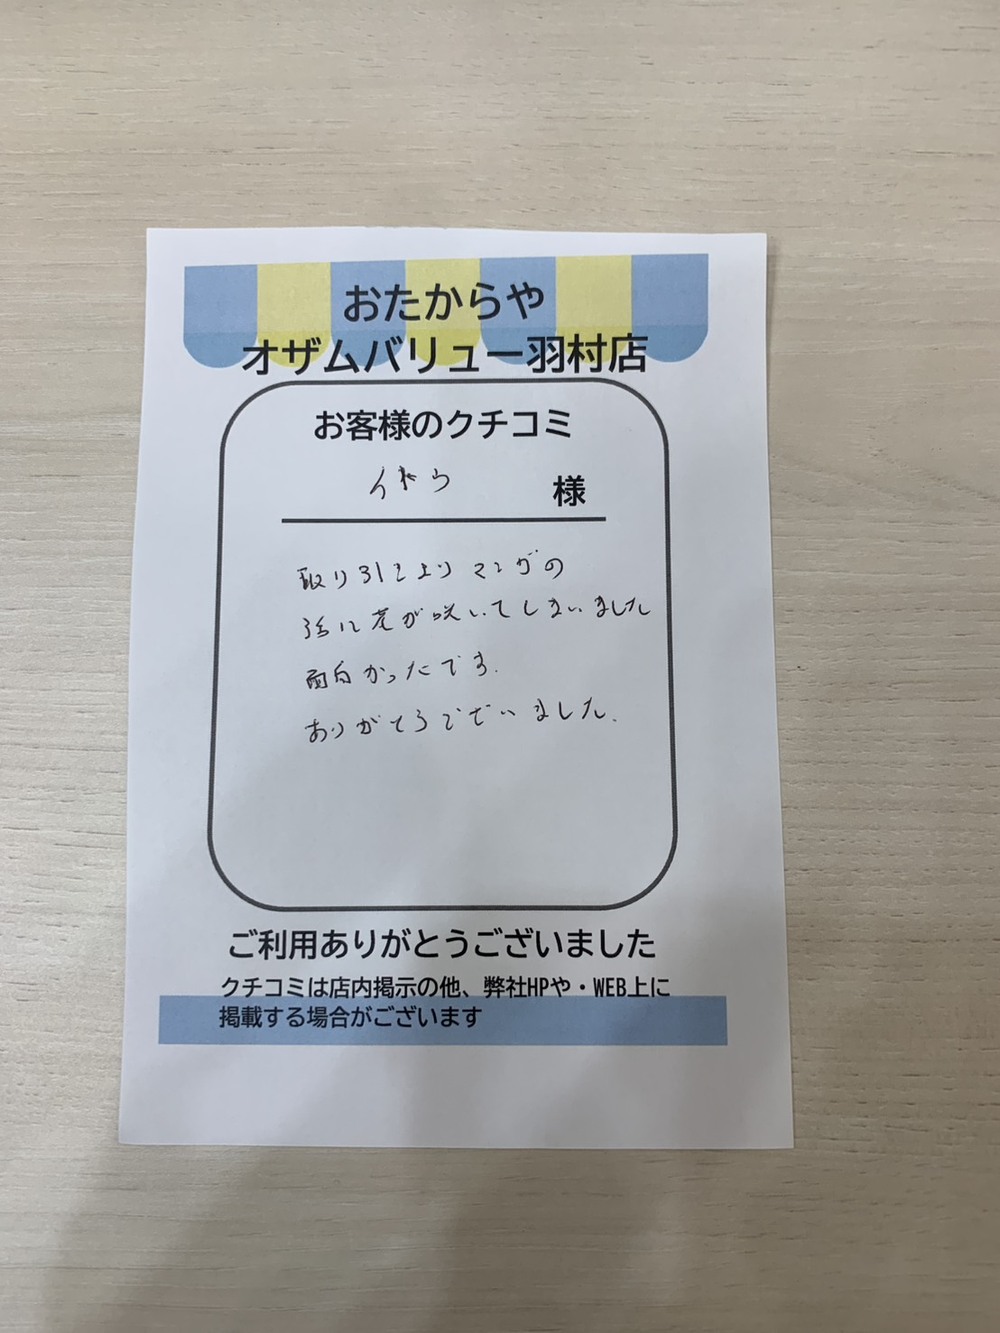 おたからや
オザムバリュー羽村店
お客様のクチコミ
様
取り引きよりマンガの
話に花が咲いてしまいました
面白かったです.
ありがとうございました.
ご利用ありがとうございました
クチコミは店内掲示の他、弊社HPや・WEB上に
掲載する場合がございます